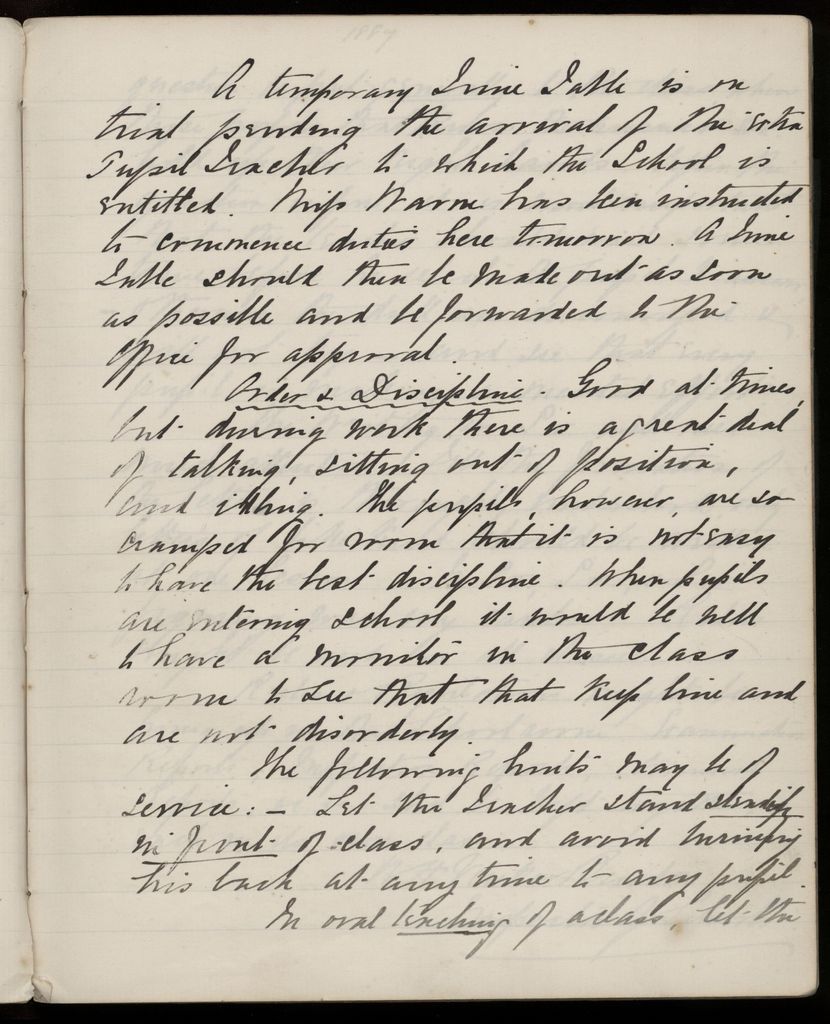 1887
A temporary Time Table is on
trial pending the arrival of the extra
Pupil Teacher to which the School is
entitled. Miss Warne has been instructed
to commence duties here tomorrow. A Time
Table should then be made out as soon
as possible and be forwarded to the
office for approval.
Order & Discipline - Good at times,
but during work there is a great deal
of talking, sitting out of position,
and idling. The pupils, however, are so
cramped for room that it is not easy
to have the best discipline. When pupils
are entering school it would be well
to have a monitor in the class
room to see that that keep line and
are not disorderly.
The following hints may be of
service: - Let the Teacher stand steadily
in front of class, and avoid turning
his back at any time to any pupil.
In oral teaching of a class, let the